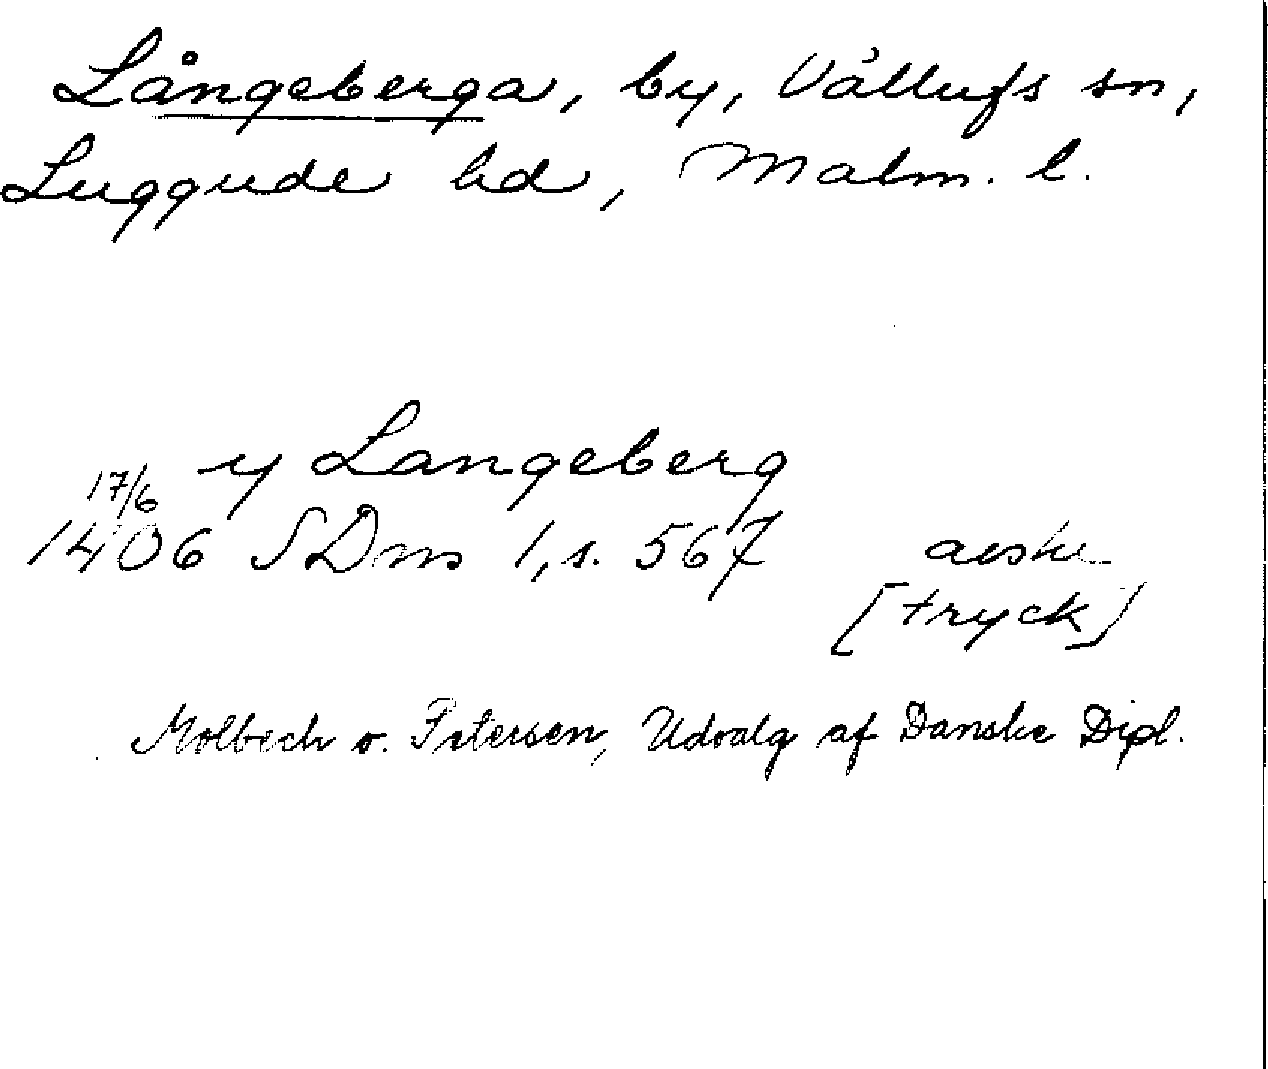 Långeberga, by, Vållufs sn,
Luggude hd, Malm. l.
y Langeberg
17/6
1406 SDns 1, s. 567 avskr.
[tryck]
Molbech o. Petersen, Udvalg af Danske Dipl.